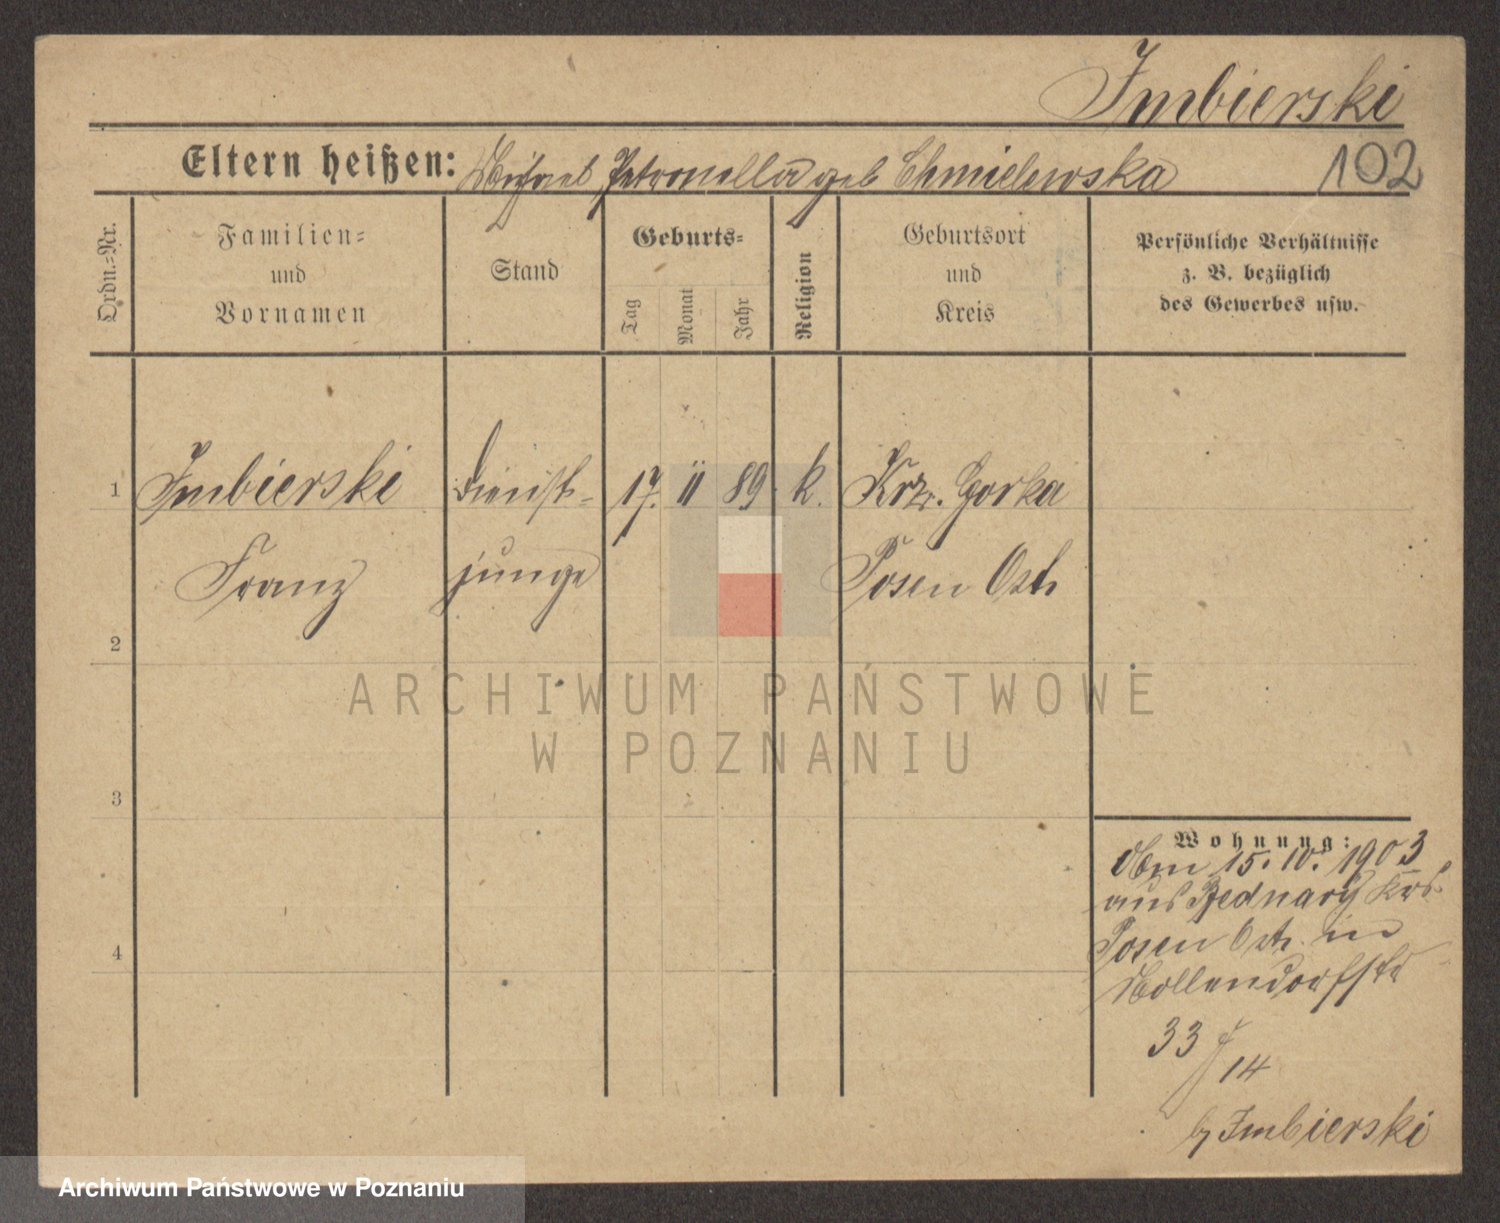 Imbierski
Eltern heißen: Michael Petronella geb Chmielewska
102
Ordn.-Nr.
Familien-
und
Vornamen
Stand
Geburts-
Tag
Monat
Jahr
Religion
Geburtsort
und
Kreis
Persönliche Verhältnisse
z. B. bezüglich
des Gewerbes usw.
1 Imbierski Dienst- 17. 11 89. k. Krz. Gorka
Franz junge Posen Ost
2
3
4
Wohnung:
15. 10. 1903
aus Bednary Krs.
Posen Ost in
33
14
b/ Imbierski
ARCHIWUM PAŃSTWOWE
W POZNANIU
Archiwum Państwowe w Poznaniu